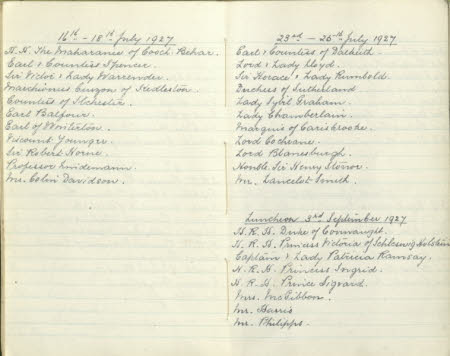 16th - 18th July 1927
H.H. The Maharanee of Cooch Behar.
Earl & Countess Spencer.
Sir Victor & Lady Warrender.
Marchioness Curzon of Kedleston.
Countess of Ilchester.
Earl Balfour.
Earl of Winterton.
Viscount Younger.
Sir Robert Horne.
Professor Lindemann.
Mr. Colin Davidson.
23rd - 25th July 1927
Earl & Countess of Dalkeith.
Lord & Lady Lloyd.
Sir Horace & Lady Rumbold.
Duchess of Sutherland.
Lady Sybil Graham.
Lady Chamberlain.
Marquis of Carisbrooke.
Lord Cochrane.
Lord Blanesburgh.
Honble Sir Henry Stonor.
Mr. Lancelot Smith.
Luncheon 3rd September 1927
H.R.H. Duke of Connaught.
H.R.H. Princess Victoria of Schleswig Holstein
Captain & Lady Patricia Ramsay.
H.R.H. Princess Ingrid.
H.R.H. Prince Sigvard.
Mrs. McGibbon.
Mr. Harris
Mr. Philipps.